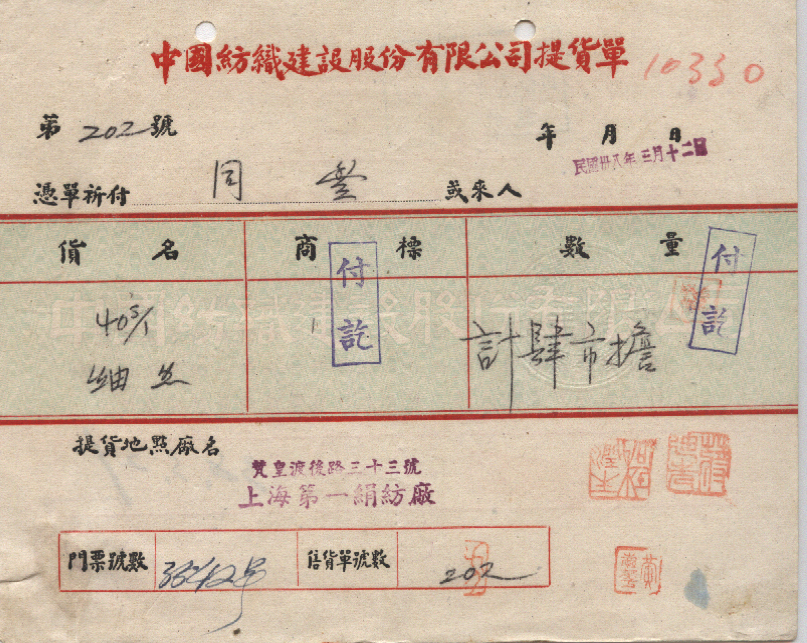 中國紡織建設股份有限公司提貨單 10330
第 202 號 年 月 日
民國卅八年三月十二日
憑單祈付 同 豐 或來人
貨 名 商 標 數 量
付訖 付訖
40s/1 計肆市擔
細
提貨地點廠名
梵皇渡後路三十三號
上海第一絹紡廠
門票號數 號 售貨單號數 202